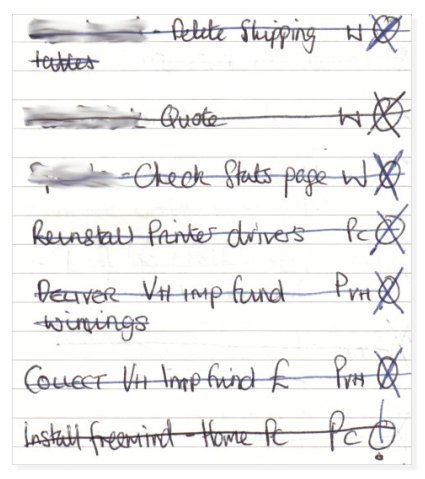 - Delete Shipping W
tables
- Quote W
- Check Stats page W
Reinstall Printer drivers PC
DELIVER VH imp fund PVH
winnings
COLLECT VH Imp fund £ PVH
Install freemind - Home PC PC !